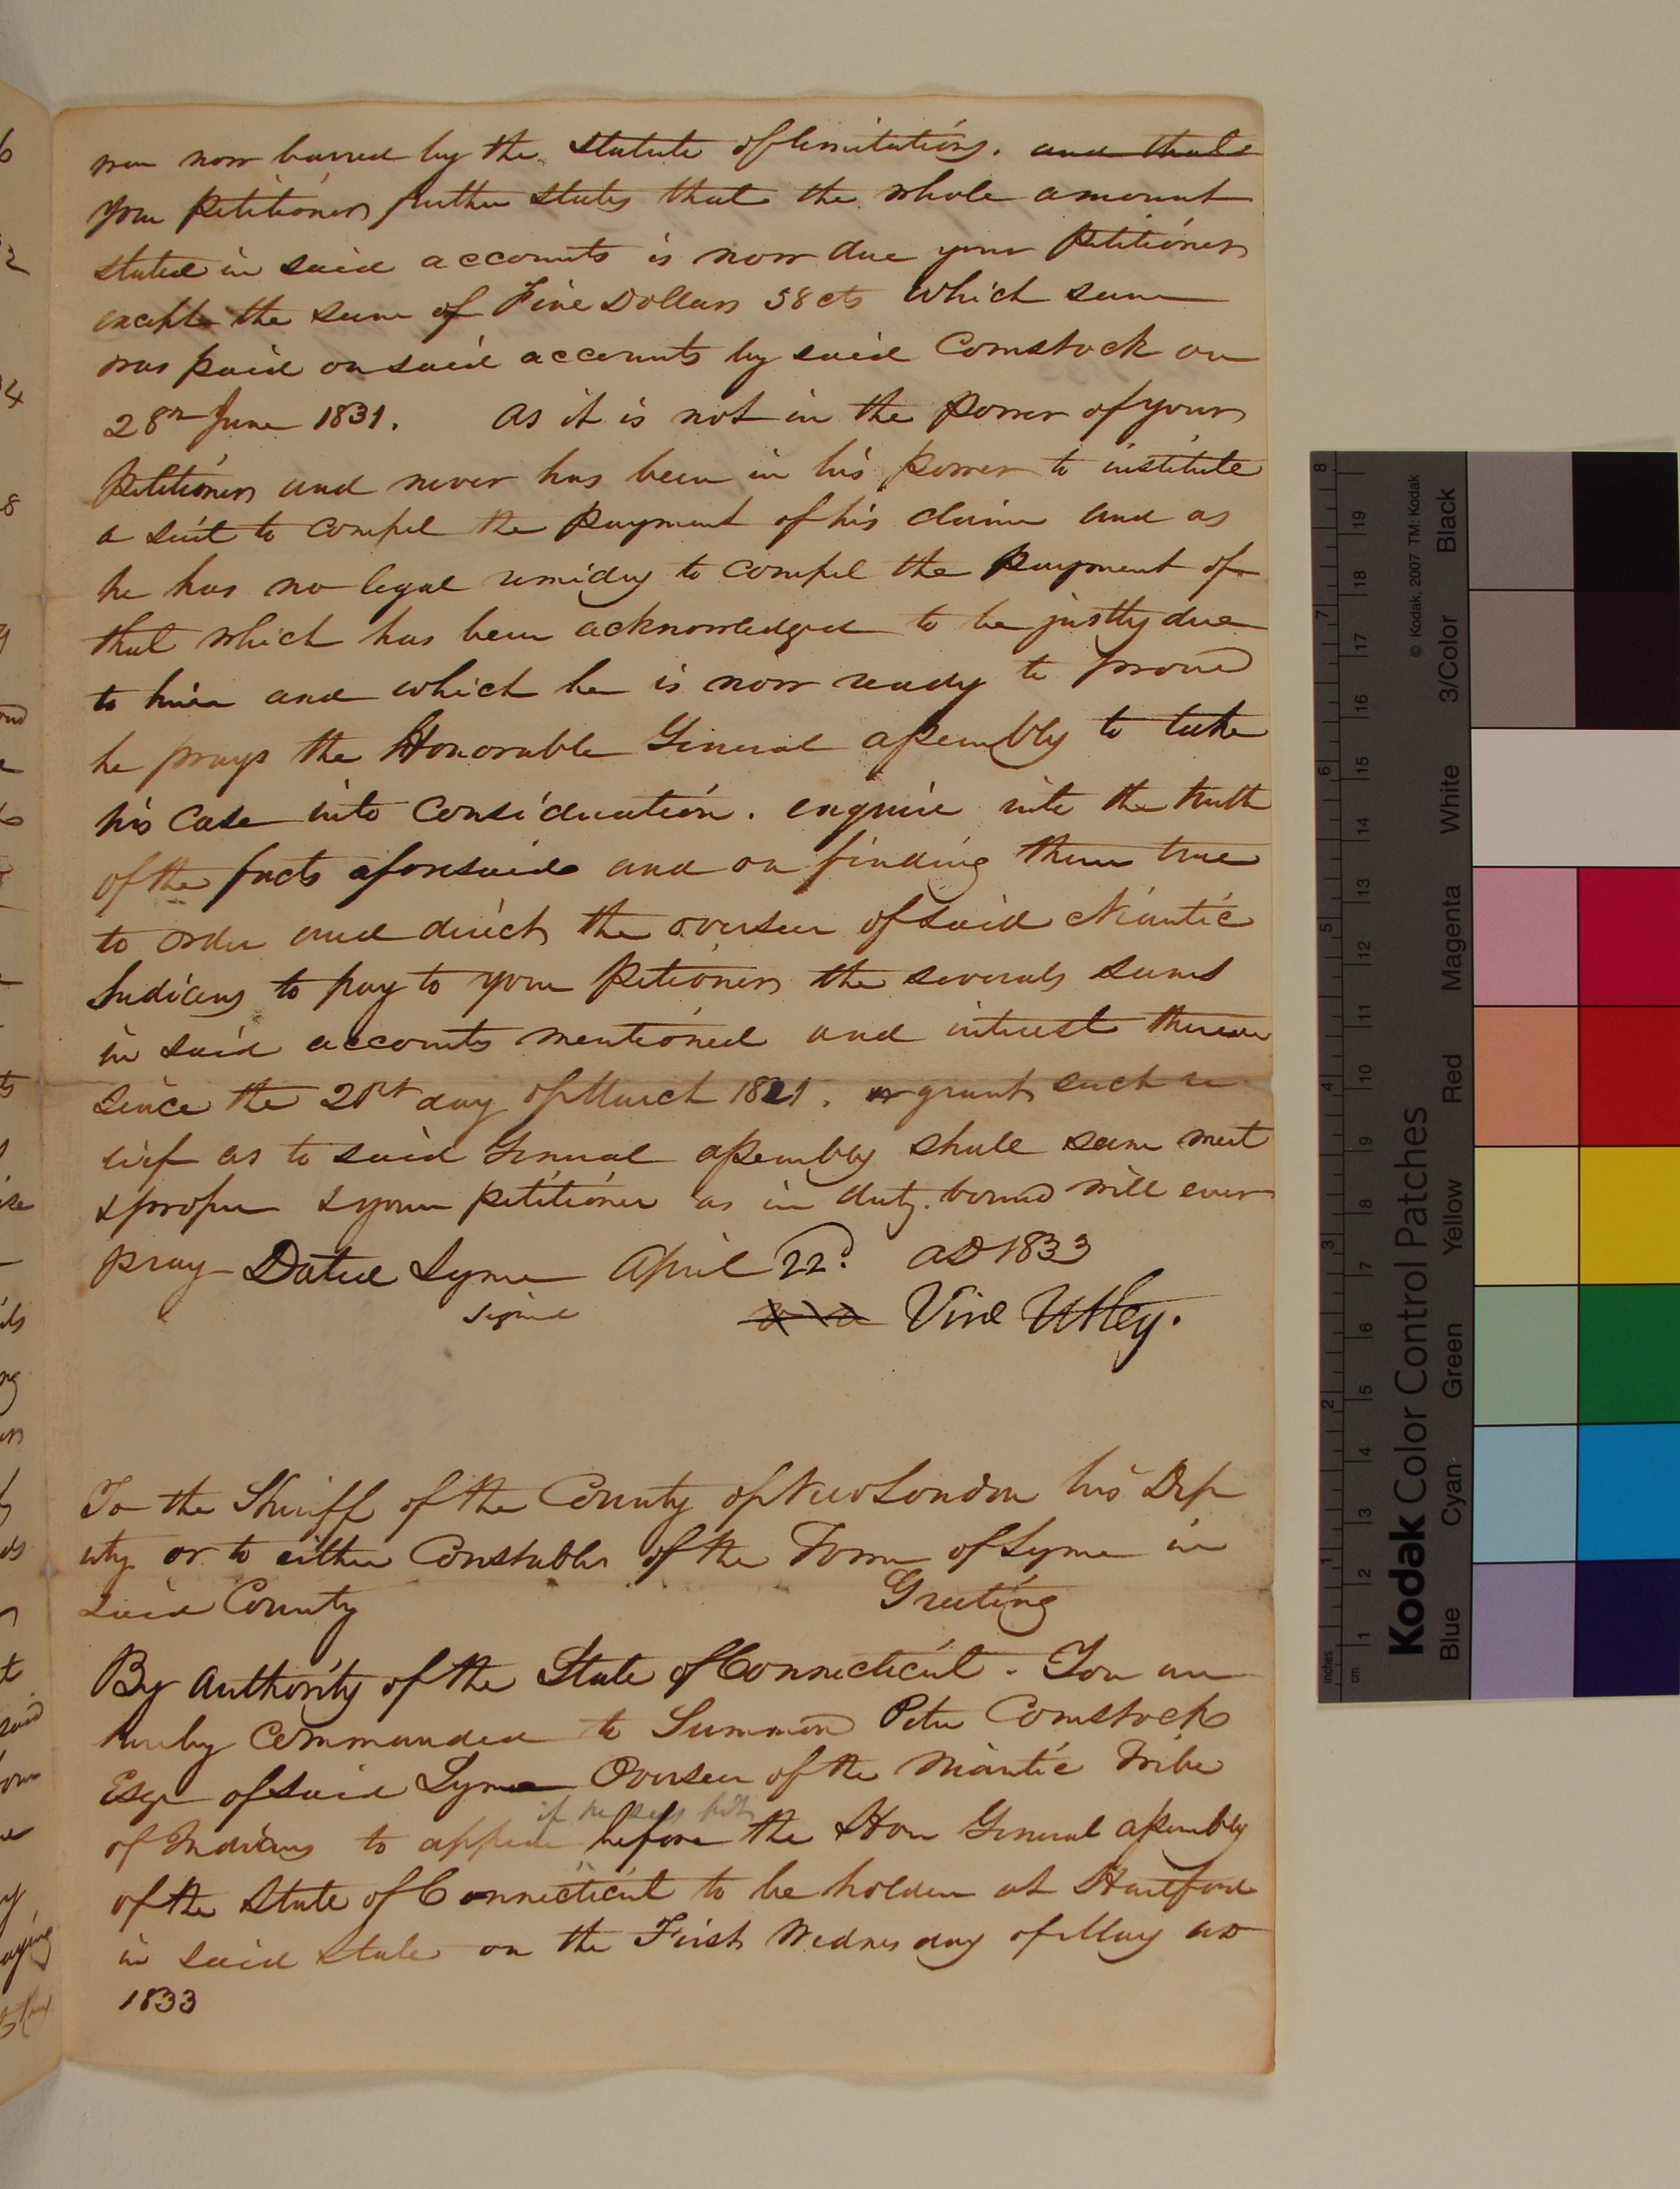 was now barred by the statute of limitations. and that
your petitioner further states that the whole amount
stated in said accounts is now due your petitioner
except the sum of Five Dollars 58 cts which sum
was paid on said accounts by said Comstock on
28th June 1831. As it is not in the power of your
petitioner and never has been in his power to institute
a suit to compel the payment of his claim and as
he has no legal remidy to compel the payment of
that which has been acknowledged to be justly due
to him and which he is now ready to prove
he prays the Honorable General assembly to take
his case into consideration. enquire into the truth
of the facts aforesaid and on finding them true
to order and direct the overseer of said Niantic
Indians to pay to your petioner the severals sums
in said accounts mentioned and interest thereon
since the 21st day of March 1821. or grant such re
lief as to said General assembly shall seem meet
& proper & your petitioner as in duty bound will ever
pray Dated Lyme April 22d. AD 1833
signed Vine Utley.
To the Sheriff of the County of New London his Dep
uty or to either Constables of the Town of Lyme in
said County Greeting
By Authority of the State of Connecticut. You are
hereby Commanded to Summon Peter Comstock
Esqr of said Lyme Overseer of the Niantic Tribe
if he sees fit
of Indians to appear before the Hon General assembly
of the State of Connecticut to be holden at Hartford
in said State on the First Wednesday of May AD
1833
Kodak Color Control Patches
© Kodak, 2007 TM: Kodak
Blue Cyan Green Yellow Red Magenta White 3/Color Black
inches 1 2 3 4 5 6 7 8
cm 1 2 3 4 5 6 7 8 9 10 11 12 13 14 15 16 17 18 19